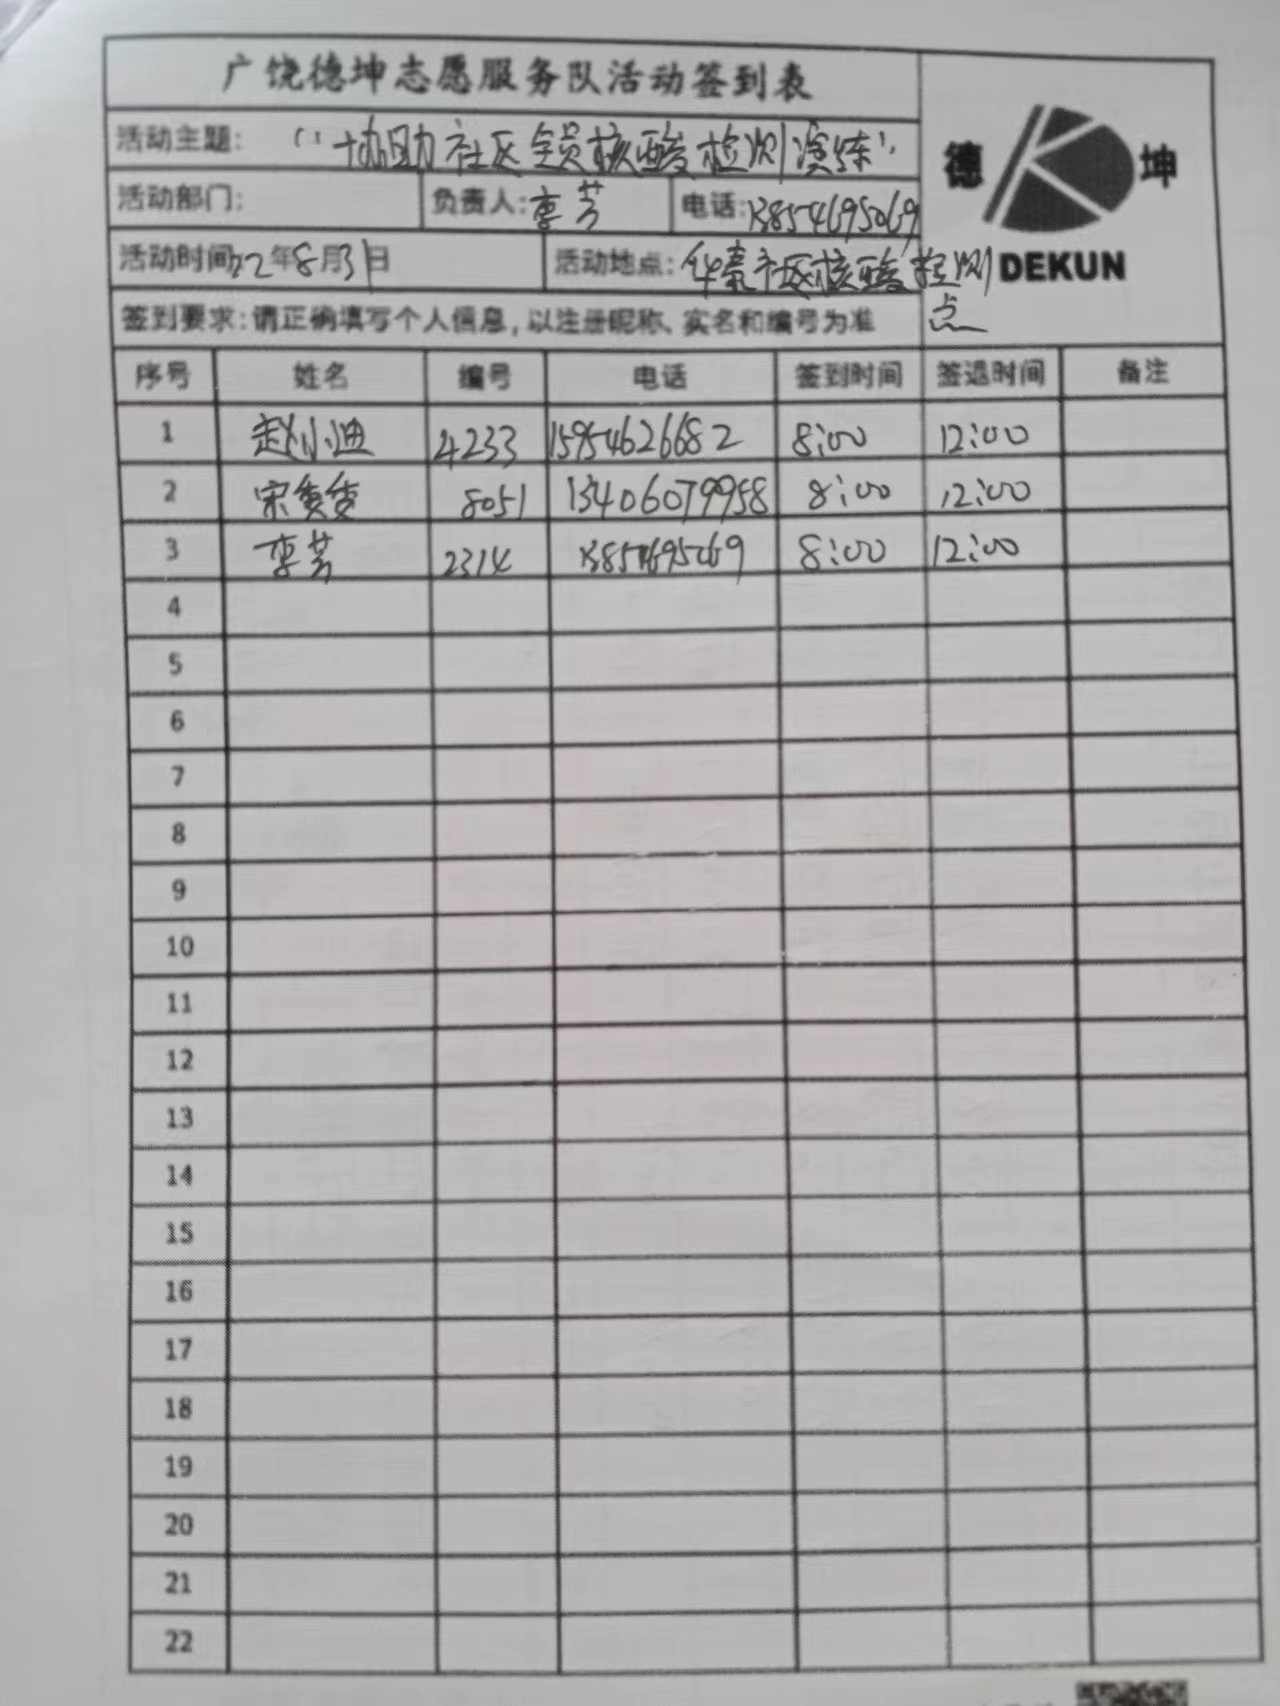 广饶德坤志愿服务队活动签到表
活动主题：“协助社区全员核酸检测演练”
德 坤
DEKUN
活动部门： 负责人：李芳 电话：13854695069
活动时间22年8月31日 活动地点：华泰社区核酸检测点
签到要求：请正确填写个人信息，以注册昵称、实名和编号为准
序号 姓名 编号 电话 签到时间 签退时间 备注
1 赵小迪 4233 15954626682 8:00 12:00
2 宋 8051 13406079958 8:00 12:00
3 李芳 2314 13854695069 8:00 12:00
4
5
6
7
8
9
10
11
12
13
14
15
16
17
18
19
20
21
22